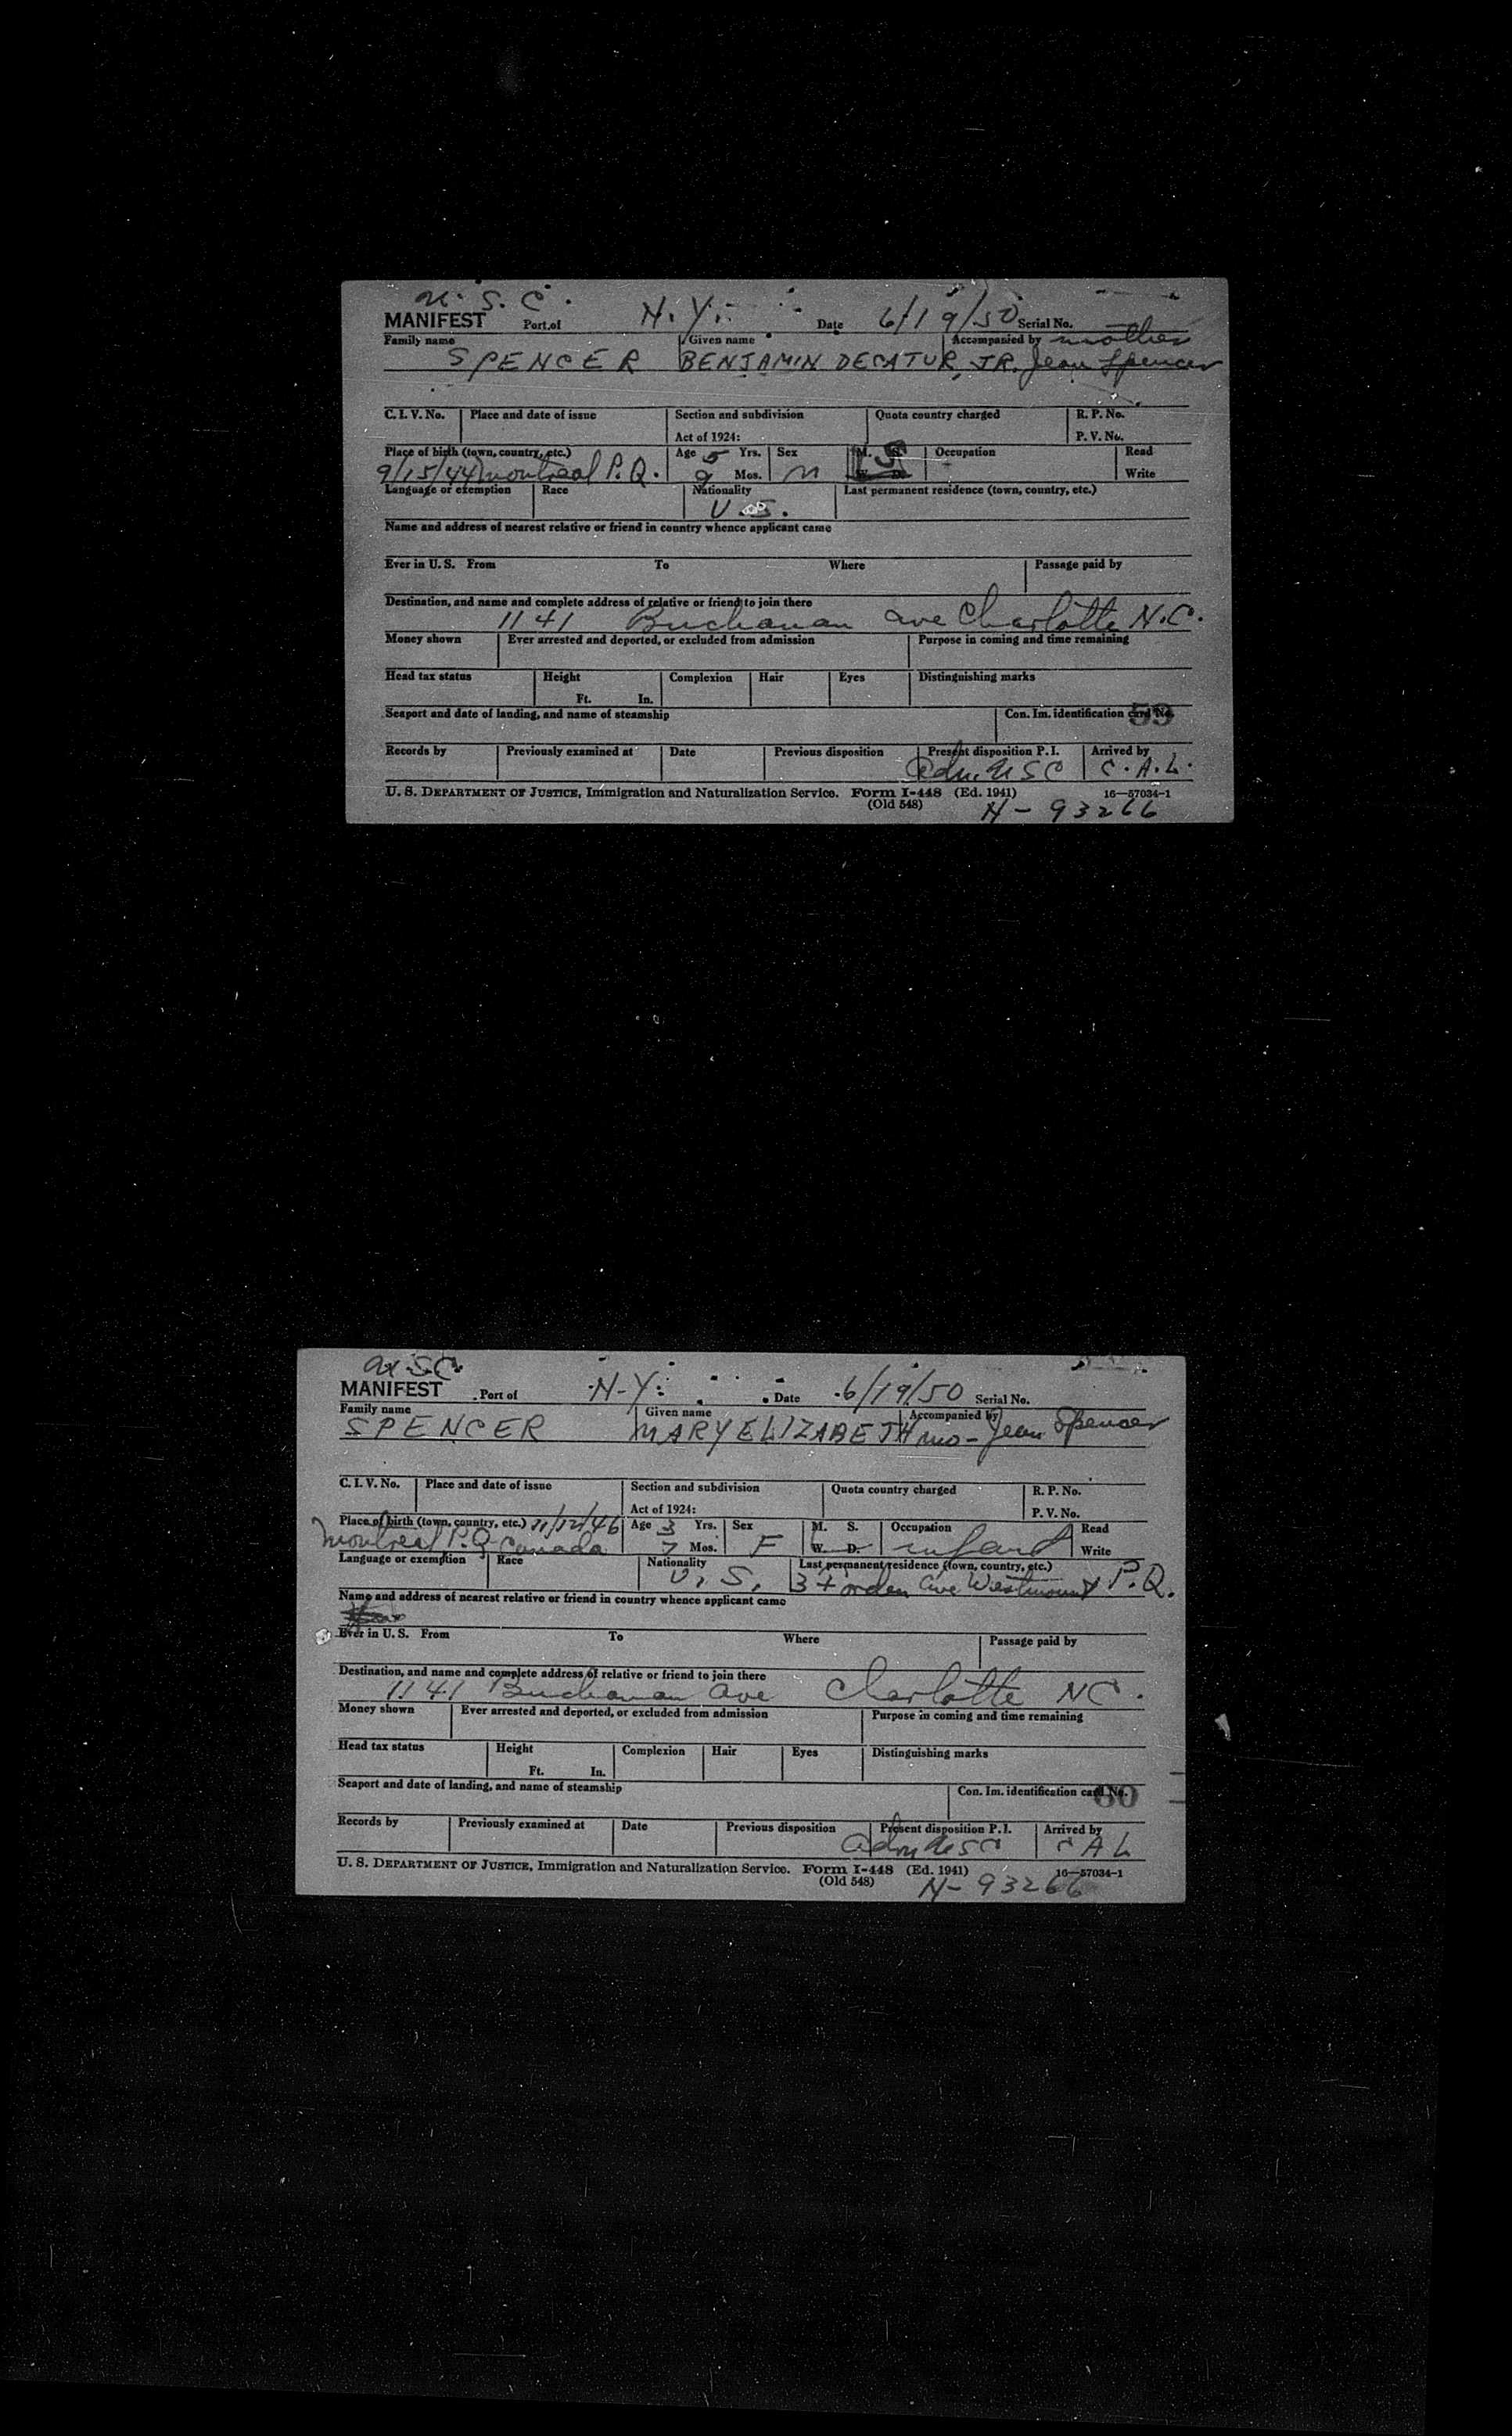 U. S. C.
MANIFEST Port of N. Y. Date 6/19/50 Serial No.
Family name Given name Accompanied by mother
SPENCER BENJAMIN DECATUR, JR. Jean Spencer
C. I. V. No. Place and date of issue Section and subdivision Quota country charged R. P. No.
Act of 1924: P. V. No.
Place of birth (town, country, etc.) Age 5 Yrs. Sex M. S. Occupation Read
9/15/44 Montreal P.Q. 9 Mos. M W. D. Write
Language or exemption Race Nationality Last permanent residence (town, country, etc.)
U.S.
Name and address of nearest relative or friend in country whence applicant came
Ever in U. S. From To Where Passage paid by
Destination, and name and complete address of relative or friend to join there
1141 Buchanan Ave Charlotte N.C.
Money shown Ever arrested and deported, or excluded from admission Purpose in coming and time remaining
Head tax status Height Complexion Hair Eyes Distinguishing marks
Ft. In.
Seaport and date of landing, and name of steamship Con. Im. identification card No. 59
Records by Previously examined at Date Previous disposition Present disposition P. I. Arrived by
Adm. USC C.A.L.
U. S. DEPARTMENT OF JUSTICE, Immigration and Naturalization Service. Form I-448 (Ed. 1941) 16—57034-1
(Old 548) N-93266
U.S.C.
MANIFEST Port of N.Y. Date 6/19/50 Serial No.
Family name Given name Accompanied by
SPENCER MARY ELIZABETH mo- Jean Spencer
C. I. V. No. Place and date of issue Section and subdivision Quota country charged R. P. No.
Act of 1924: P. V. No.
Place of birth (town, country, etc.) 11/12/46 Age 3 Yrs. Sex M. S. Occupation Read
Montreal P.Q. Canada 7 Mos. F W. D. infant Write
Language or exemption Race Nationality Last permanent residence (town, country, etc.)
U.S. Ave Westmount P.Q.
Name and address of nearest relative or friend in country whence applicant came
Ever in U. S. From To Where Passage paid by
Destination, and name and complete address of relative or friend to join there
1141 Buchanan Ave Charlotte NC.
Money shown Ever arrested and deported, or excluded from admission Purpose in coming and time remaining
Head tax status Height Complexion Hair Eyes Distinguishing marks
Ft. In.
Seaport and date of landing, and name of steamship Con. Im. identification card No. 60
Records by Previously examined at Date Previous disposition Present disposition P. I. Arrived by
Adm USC CAL
U. S. DEPARTMENT OF JUSTICE, Immigration and Naturalization Service. Form I-448 (Ed. 1941) 16—57034-1
(Old 548) N-93266